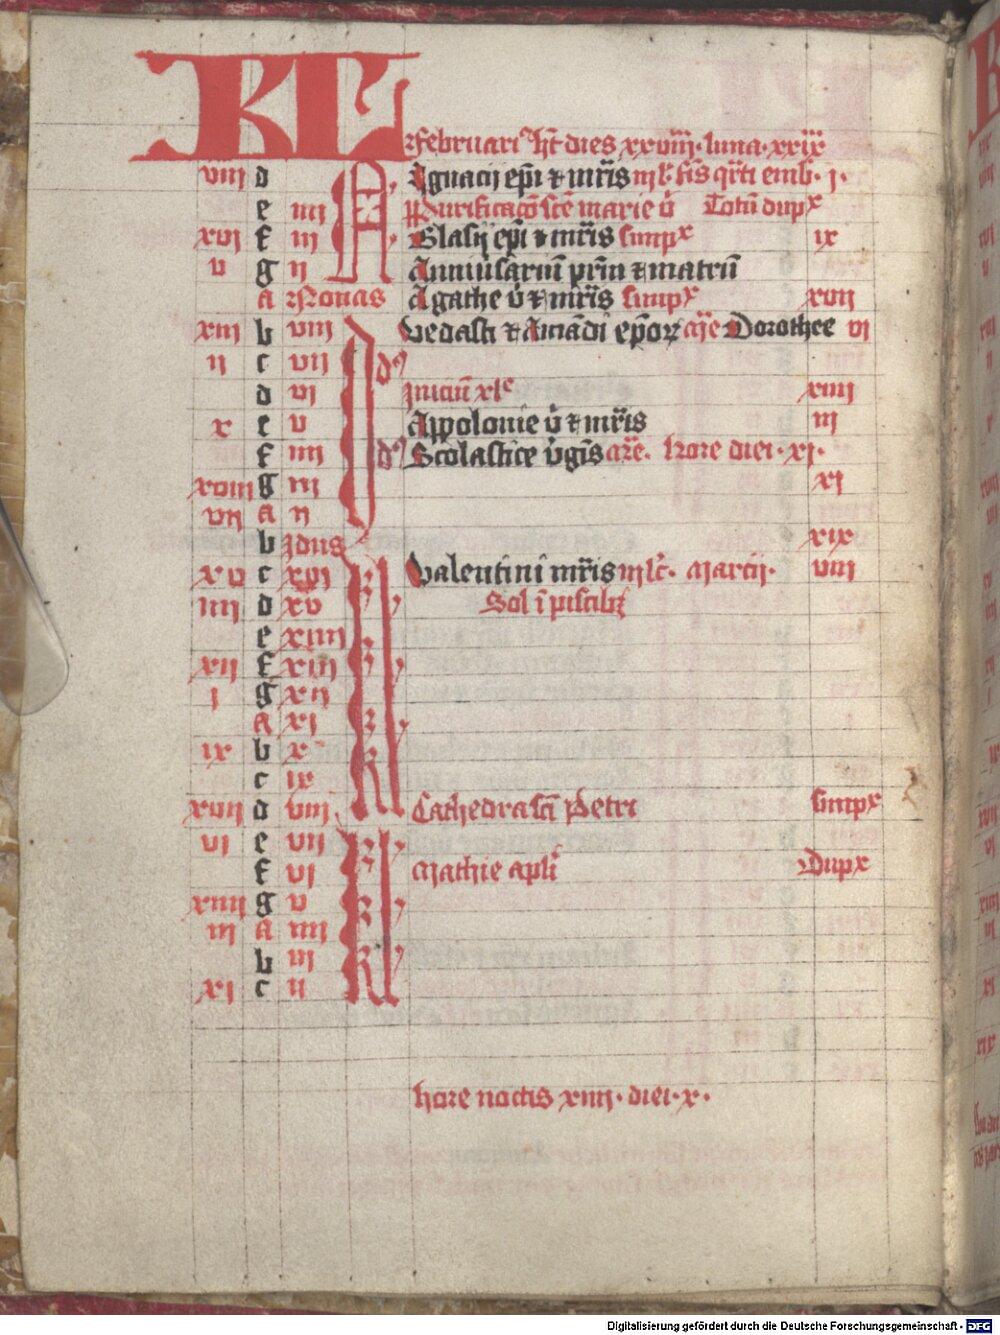 KL
Februari' ht dies xxviii · luna · xxix
viii d Ignacij epi & mris
e iiii Purificaco sce marie Totu dupx
xvi f iii Blasij epi & mris simpx ix
v g ii Anniusariu prm & matru
a Nonas Agathe v & mris simpx xvii
xiii b viii Vedasti & Amadi epor Dorothee vi
ii c vii
d vi Iniciu xle xiiii
x e v Appolonie v & mris iii
f iiii Scolastice vgis are · hore diei · xi ·
xviii g iii xi
vii a ii
b Idus xix
xv c xvi Valentini mris Marcij · viii
iiii d xv Sol i piscib
e xiiii
xii f xiii
i g xii
a xi
ix b x
c ix
xvii d viii Cathedra sci Petri simpx
vi e vii
f vi Mathie apli Dupx
xiiii g v
iii a iiii
b iii
xi c ii
hore noctis xiiii · diei · x ·
Digitalisierung gefördert durch die Deutsche Forschungsgemeinschaft - DFG